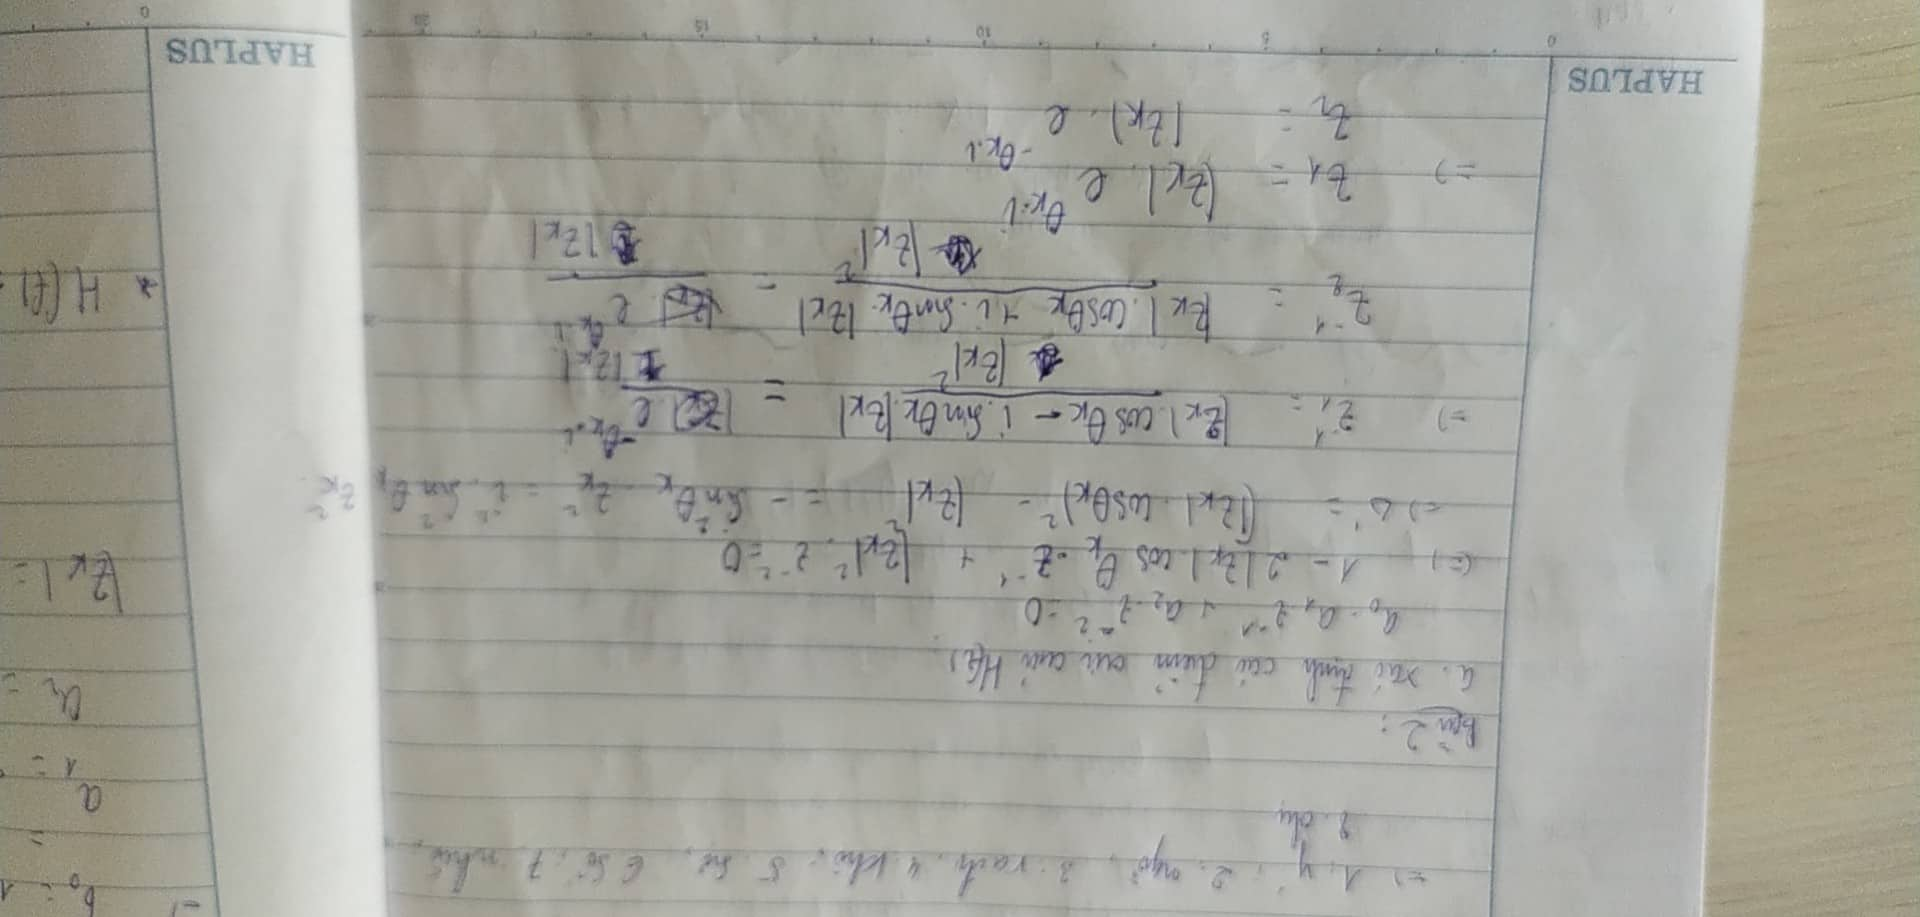 =) 1. y, 2. ngo, 3. rach, 4. khi, 5. se, 6. số, 7. như,
8. chy
Bài 2:
a. xác định các điểm cực của H(z)
a₀ - a₁ z⁻¹ + a₂ z⁻² = 0
(=) 1 - 2|zₖ| cos θₖ z⁻¹ + |zₖ|² z⁻² = 0
=) Δ' = (|zₖ| cosθₖ)² - |zₖ|² = - sin²θₖ zₖ² = i² sin²θₖ zₖ²
=) z₁⁻¹ = |zₖ| cos θₖ - i. sinθₖ |zₖ| / |zₖ|² = e^-θₖ.i / |zₖ|
z₂⁻¹ = |zₖ| cosθₖ + i. sinθₖ |zₖ| / |zₖ|² = e^θₖ.i / |zₖ|
=) z₁ = |zₖ| e^θₖ.i
z₂ = |zₖ|. e^-θₖ.i
HAPLUS
0 5 10 15 20
b₀ = 1
a₁ =
a₂ =
|zₖ| =
* H(f)
HAPLUS
0